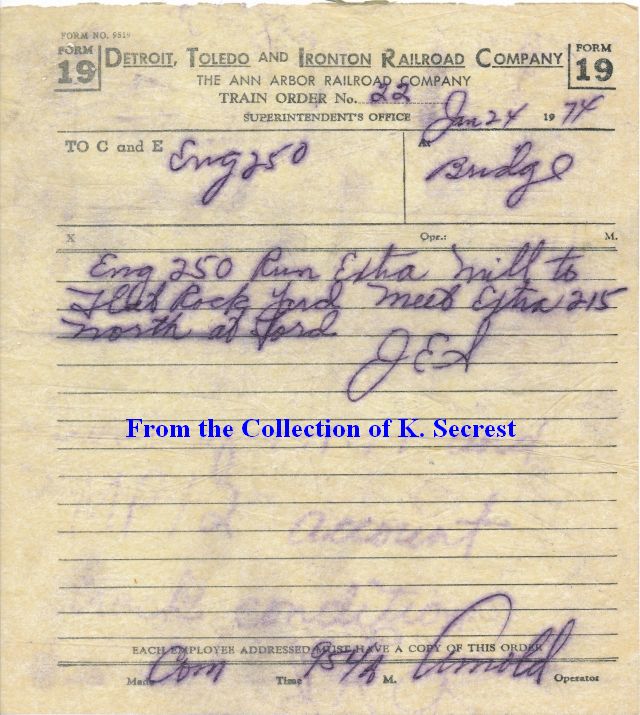 FORM NO. 9519
FORM 19 DETROIT, TOLEDO AND IRONTON RAILROAD COMPANY FORM 19
THE ANN ARBOR RAILROAD COMPANY
TRAIN ORDER No. 22
SUPERINTENDENT'S OFFICE Jan 24 1974
TO C and E Eng 250 At Bridge
X Opr.: M.
Eng 250 Run Extra Mill to
Flat Rock Yard Meet Extra 215
North at Ford
From the Collection of K. Secrest
account
condition
EACH EMPLOYEE ADDRESSED MUST HAVE A COPY OF THIS ORDER
Made Com Time M. Arnold Operator